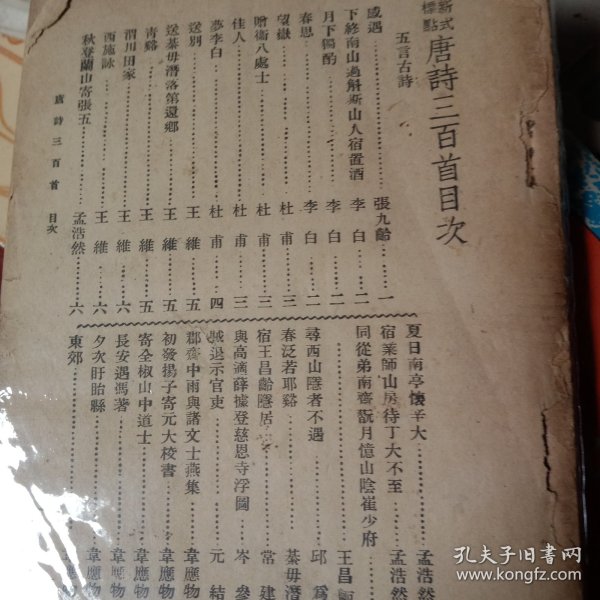 新式標點 唐詩三百首目次
五言古詩
感遇 張九齡 一
下終南山過斛斯山人宿置酒 李白 二
月下獨酌 李白 二
春思 李白 二
望嶽 杜甫 三
贈衞八處士 杜甫 三
佳人 杜甫 三
夢李白 杜甫 四
送別 王維 五
送綦毋潛落第還鄉 王維 五
青谿 王維 五
渭川田家 王維 六
西施詠 王維 六
秋登蘭山寄張五 孟浩然 六
唐詩三百首 目次
夏日南亭懷辛大 孟浩然
宿業師山房待丁大不至 孟浩然
同從弟南齋翫月憶山陰崔少府 王昌齡
尋西山隱者不遇 邱爲
春泛若耶谿 綦毋潛
宿王昌齡隱居 常建
與高適薛據登慈恩寺浮圖 岑參
賊退示官吏 元結
郡齋中雨與諸文士燕集 韋應物
初發揚子寄元大校書 韋應物
寄全椒山中道士 韋應物
長安遇馮著 韋應物
夕次盱眙縣 韋應物
東郊 韋應物
孔夫子旧书网
www.kongfz.com